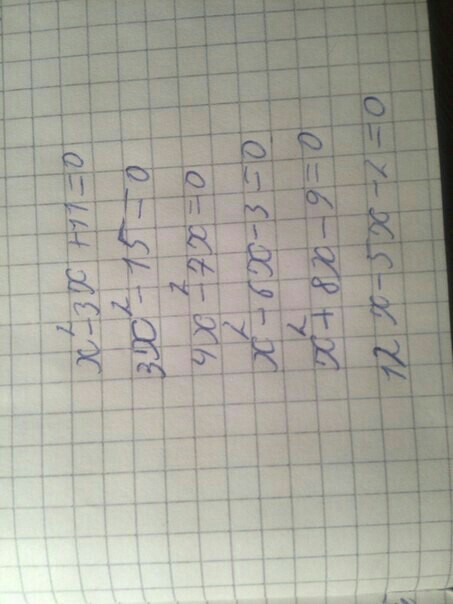 x² - 3x + 11 = 0
3x² - 15 = 0
4x² - 7x = 0
x² - 6x - 3 = 0
x² + 8x - 9 = 0
12x - 5x - 2 = 0